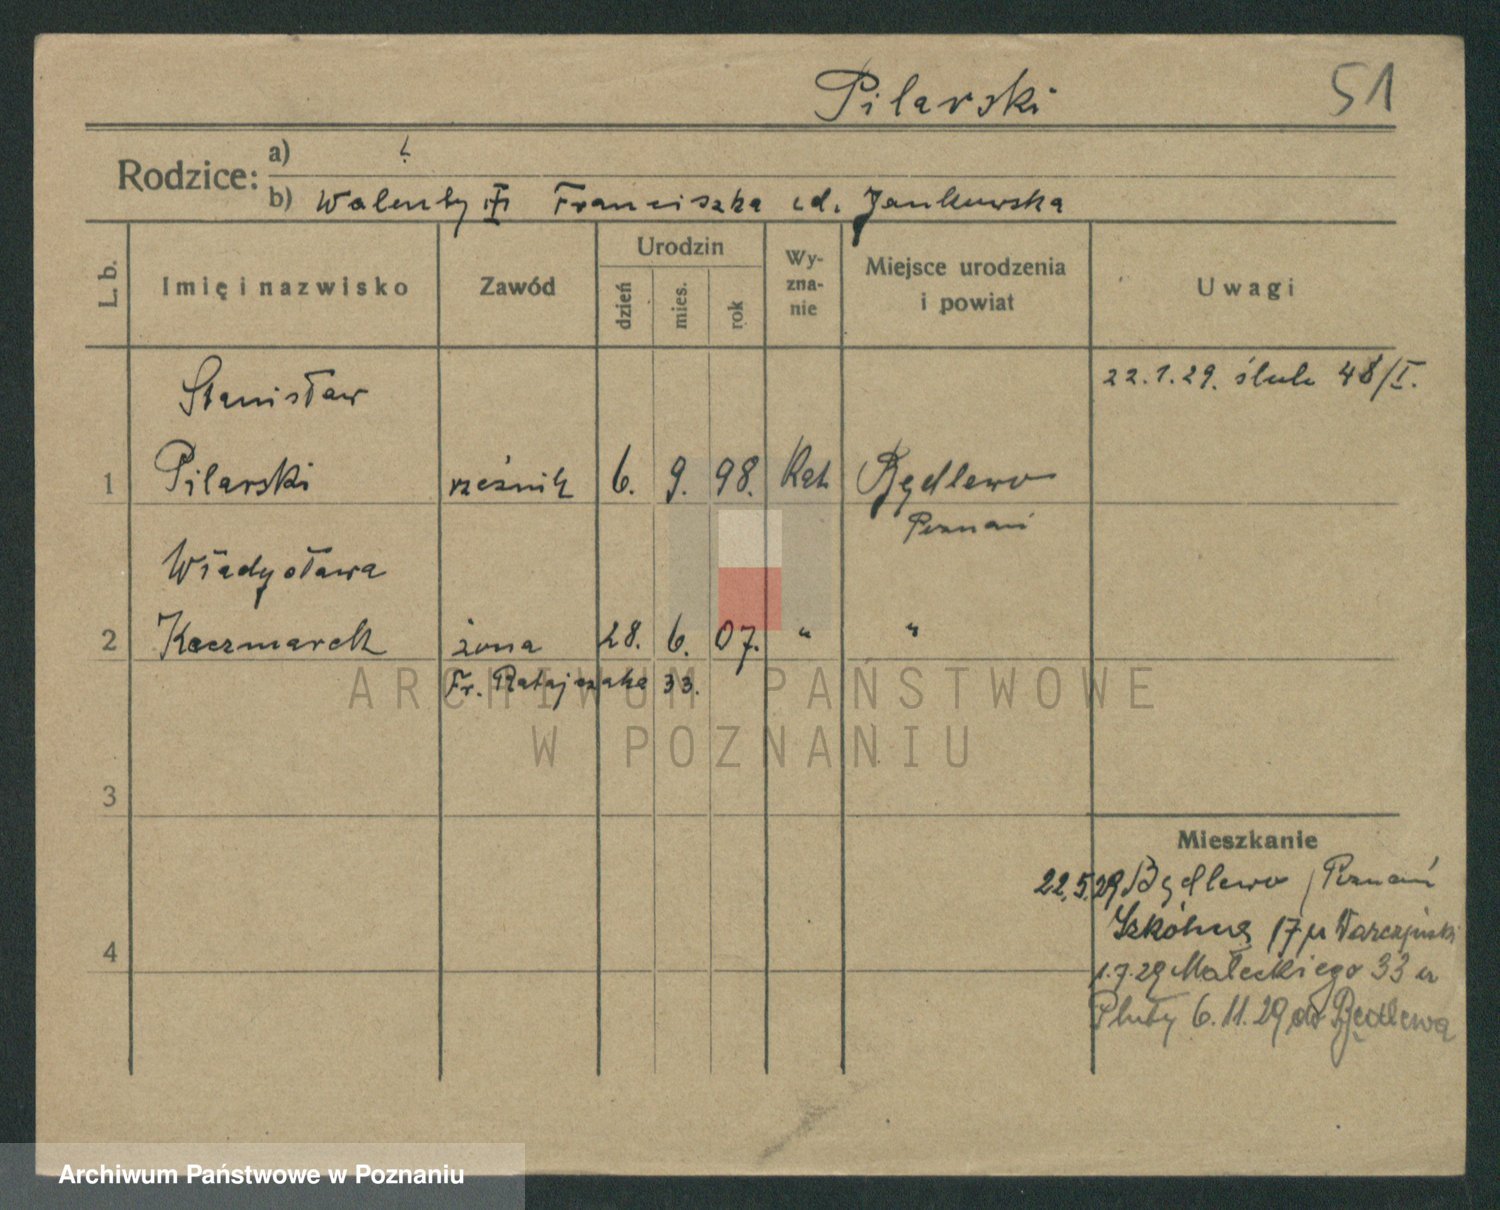 Pilarski 51
Rodzice: a)
b) Walenty Franciszka z d. Jankowska
L. b. Imię i nazwisko Zawód Urodzin dzień mies. rok Wy-zna-nie Miejsce urodzenia i powiat Uwagi
Stanisław 22.1.29. ślub 48/I.
1 Pilarski rzeźnik 6. 9. 98. Kat. Będlewo
Poznań
Władysława
2 Kaczmarek żona 28. 6. 07. " "
Fr. Ratajczaka 33.
3
Mieszkanie
22.5.29 Będlewo, Poznań
Szkólna 17 u
4
1.7.29 Małeckiego 33 u
Pluty 6.11.29 do Będlewa
ARCHIWUM PAŃSTWOWE
W POZNANIU
Archiwum Państwowe w Poznaniu